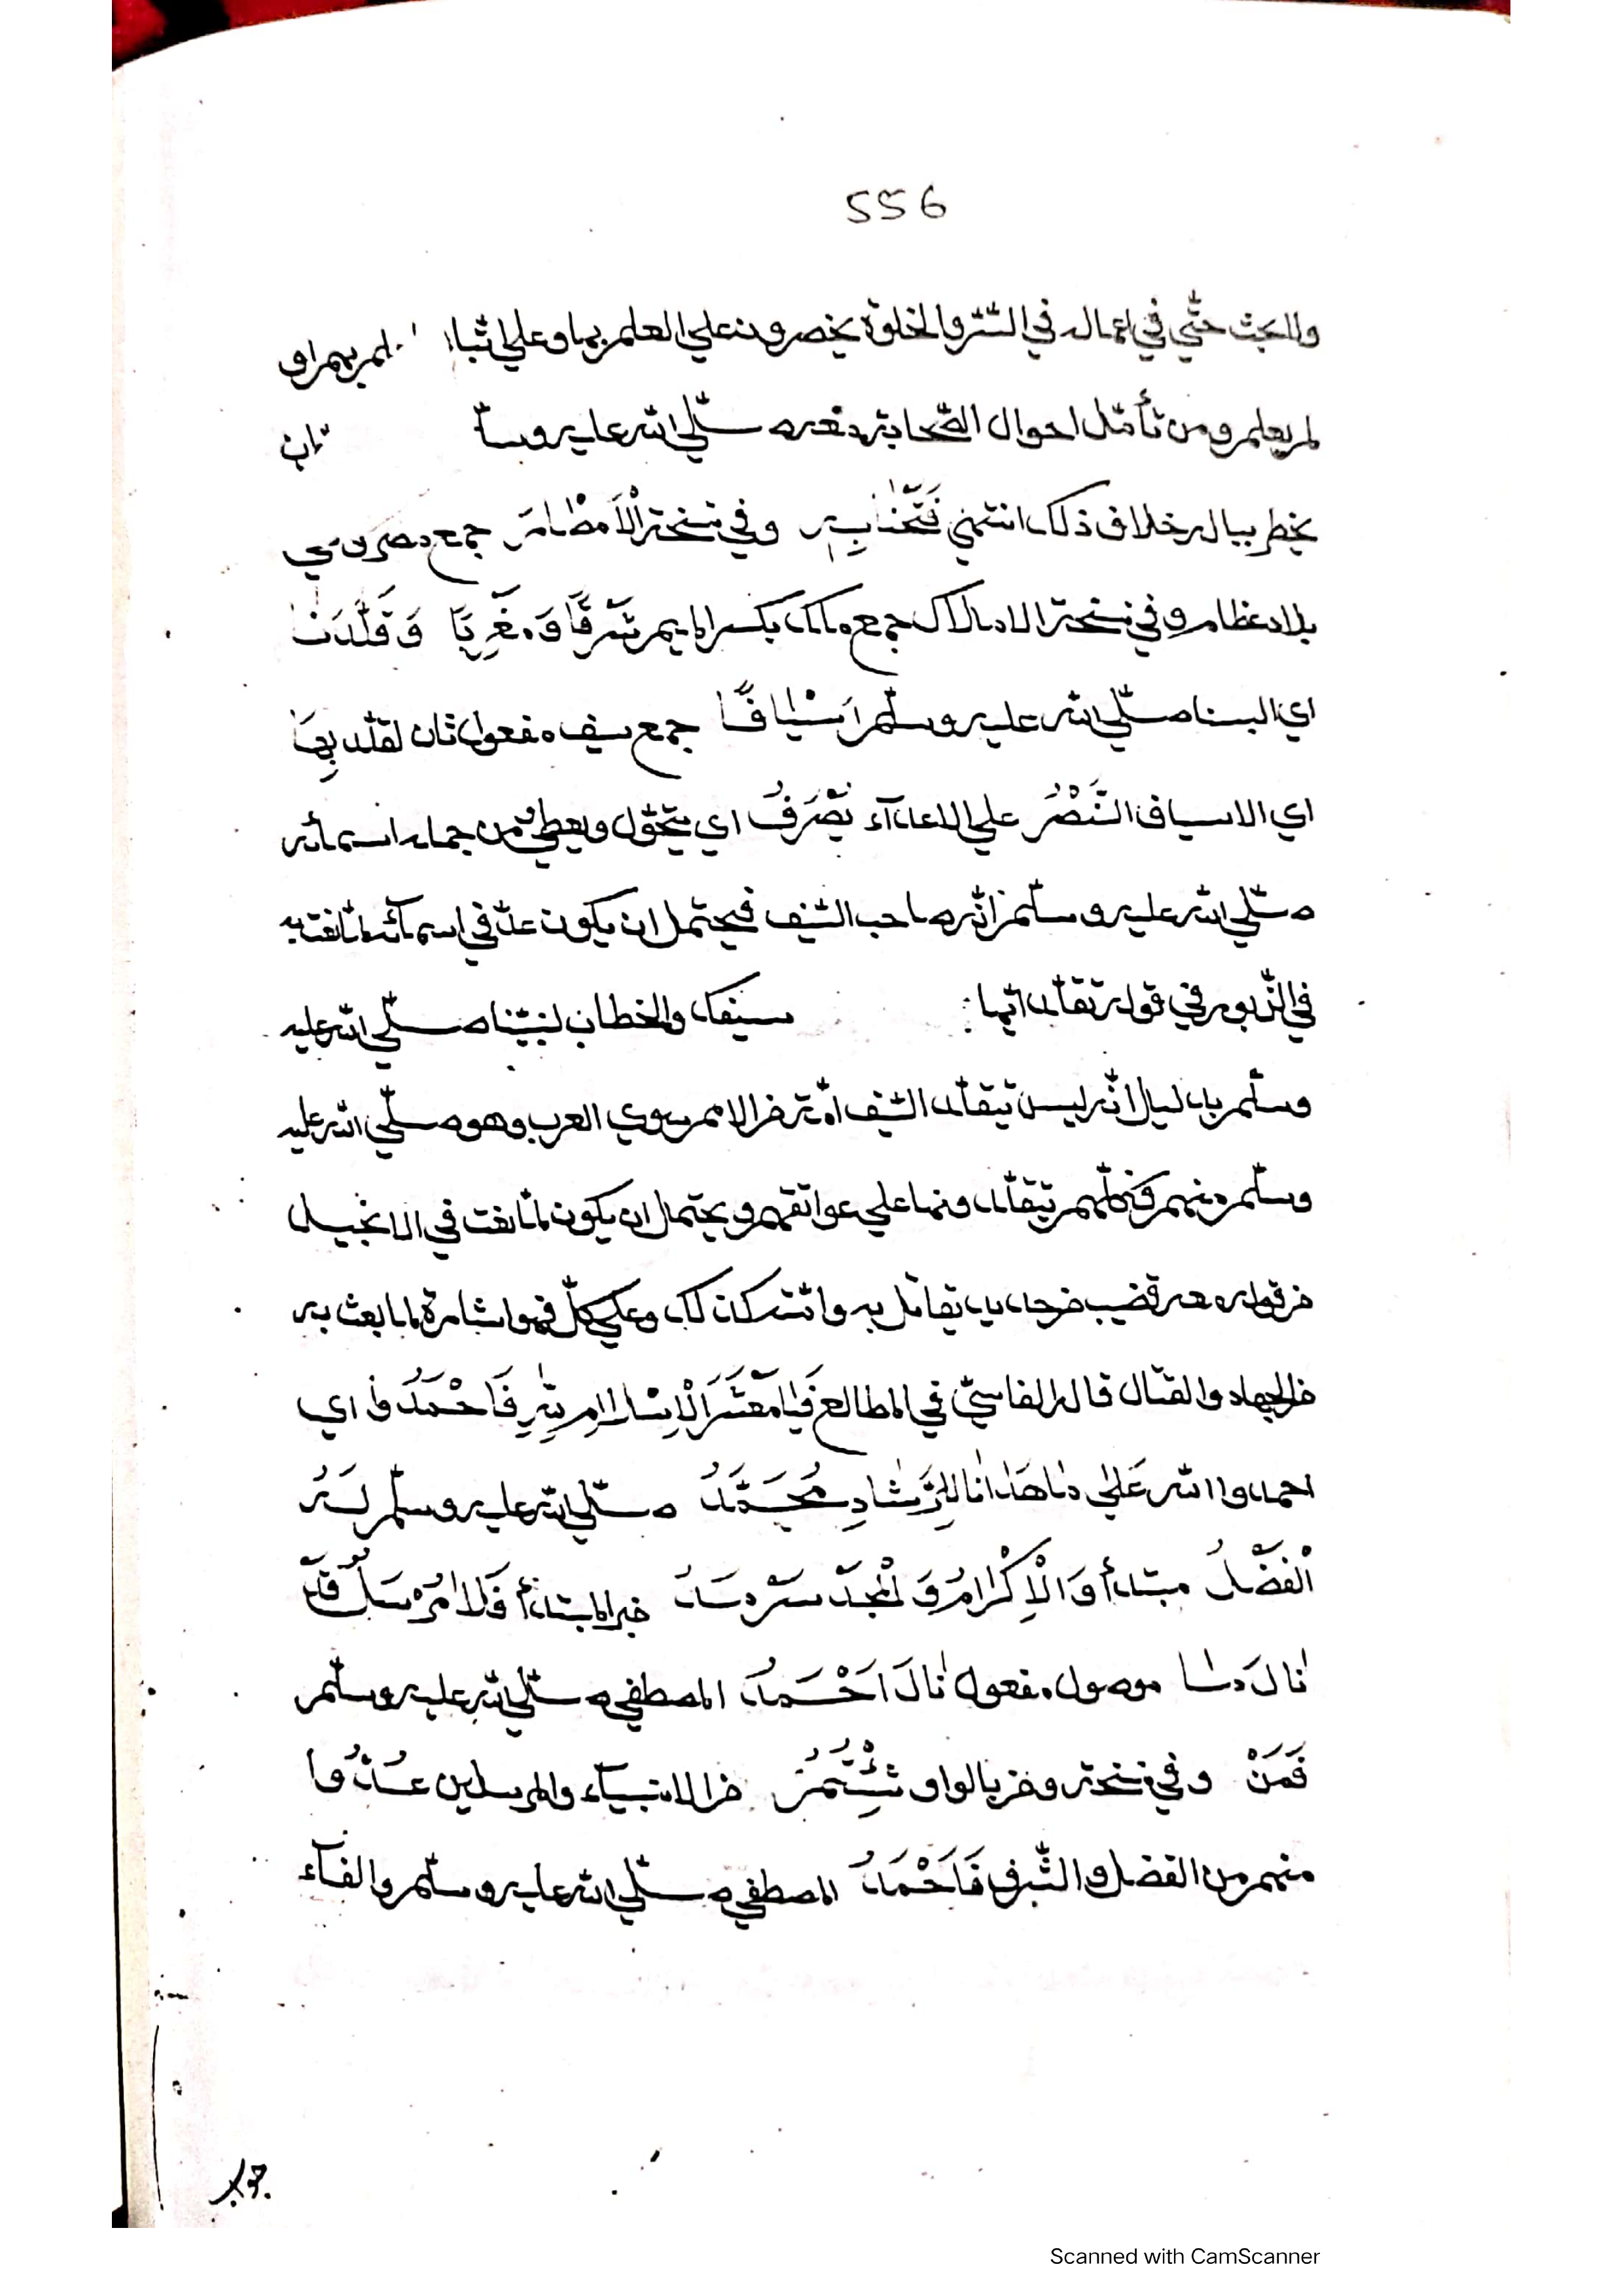 556
والبحث حتّي في اعماله في السّتر والخلوة يحصرون علي العلم بها وعلي اتّباع
لم يعلم ومن تأمّل احوال الصّحابة معه صلّي الله عليه وسلّم
يخطر بباله خلاف ذلك انتهي فَتَحْنَا بِهِ وفي نسخة الْأَمْصَارَ جمع مصر اي
بلاد عظام وفي نسخة الاملاك جمع ملك بكسر الميم شَرْقًا وَمَغْرِبًا وَقَلَّدَنَا
اي البسنا صلّي الله عليه وسلّم اَسْيَافًا جمع سيف مفعول ثان لقلّد بِهَا
اي الاسياف النَّصْرُ علي الاعدآء يُصْرَفُ اي يتحوّل ويعطي من جملة اسمائه
صلّي الله عليه وسلّم انّه صاحب السّيف فيحتمل ان يكون عدّ في اسمآئه لما نعت به
في الزّبور في قوله تقلّد ايّها سيفك والخطاب لنبيّنا صلّي الله عليه
وسلّم بدليل انّه ليس يتقلّد السّيف امّة من الامم سوي العرب وهو صلّي الله عليه
وسلّم منهم فكلّهم يتقلّدونها علي عواتقهم ويحتمل ان يكون لما نعت في الانجيل
من قوله معه قضيب من حديد يقاتل به وامّته كذلك وعلي كلّ فهو اشارة لما بعث به
من الجهاد والقتال قاله الفاسيّ في المطالع فَيَا مَعْشَرَ الْاِسْلَامِ لِلّٰهِ فَاحْمَدُوا اي
احمدوا الله عَلَي مَا هَدَانَا لِلرَّشَادِ مُحَمَّدُ صلّي الله عليه وسلّم لَهُ
الْفَضْلُ مبتدأ وَالْاِكْرَامُ وَالْمَجْدُ سَرْمَدُ خبر المبتدأ فَلَا مُرْسَلٌ قَدْ
نَالَ مَا موصول مفعول نَالَ اَحْمَدُ المصطفي صلّي الله عليه وسلّم
فَمَنْ وفي نسخة ومن بالواو شِئْتُمُ من الانبيآء والمرسلين عُدُّوا
منهم من الفضل والشّرف فَاَحْمَدُ المصطفي صلّي الله عليه وسلّم والفآء
Scanned with CamScanner